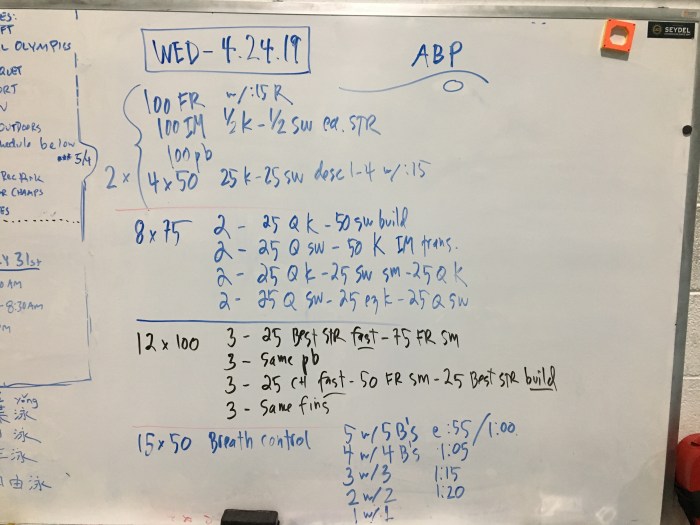 FT
L OLYMPICS
QUET
ORT
OUTDOORS
below
5/4
R CHAMPS
ES
Y 31st
0 AM
-8:30AM
yǒng
泳
泳
泳
由泳
WED - 4.24.19
ABP
SEYDEL
2 x
100 FR w/:15 R
100 IM ½ K - ½ SW ea. STR
100 pb
4 x 50 25 K - 25 SW desc 1-4 w/:15
8 x 75 2 - 25 Q K - 50 SW build
2 - 25 Q SW - 50 K IM trans.
2 - 25 Q K - 25 SW sm - 25 Q K
2 - 25 Q SW - 25 ez K - 25 Q SW
12 x 100 3 - 25 Best STR fast - 75 FR sm
3 - Same pb
3 - 25 CH fast - 50 FR sm - 25 Best STR build
3 - Same fins
15 x 50 Breath control 5 w/5 B's @ :55/1:00
4 w/4 B's 1:05
3 w/3 1:15
2 w/2 1:20
1 w/1